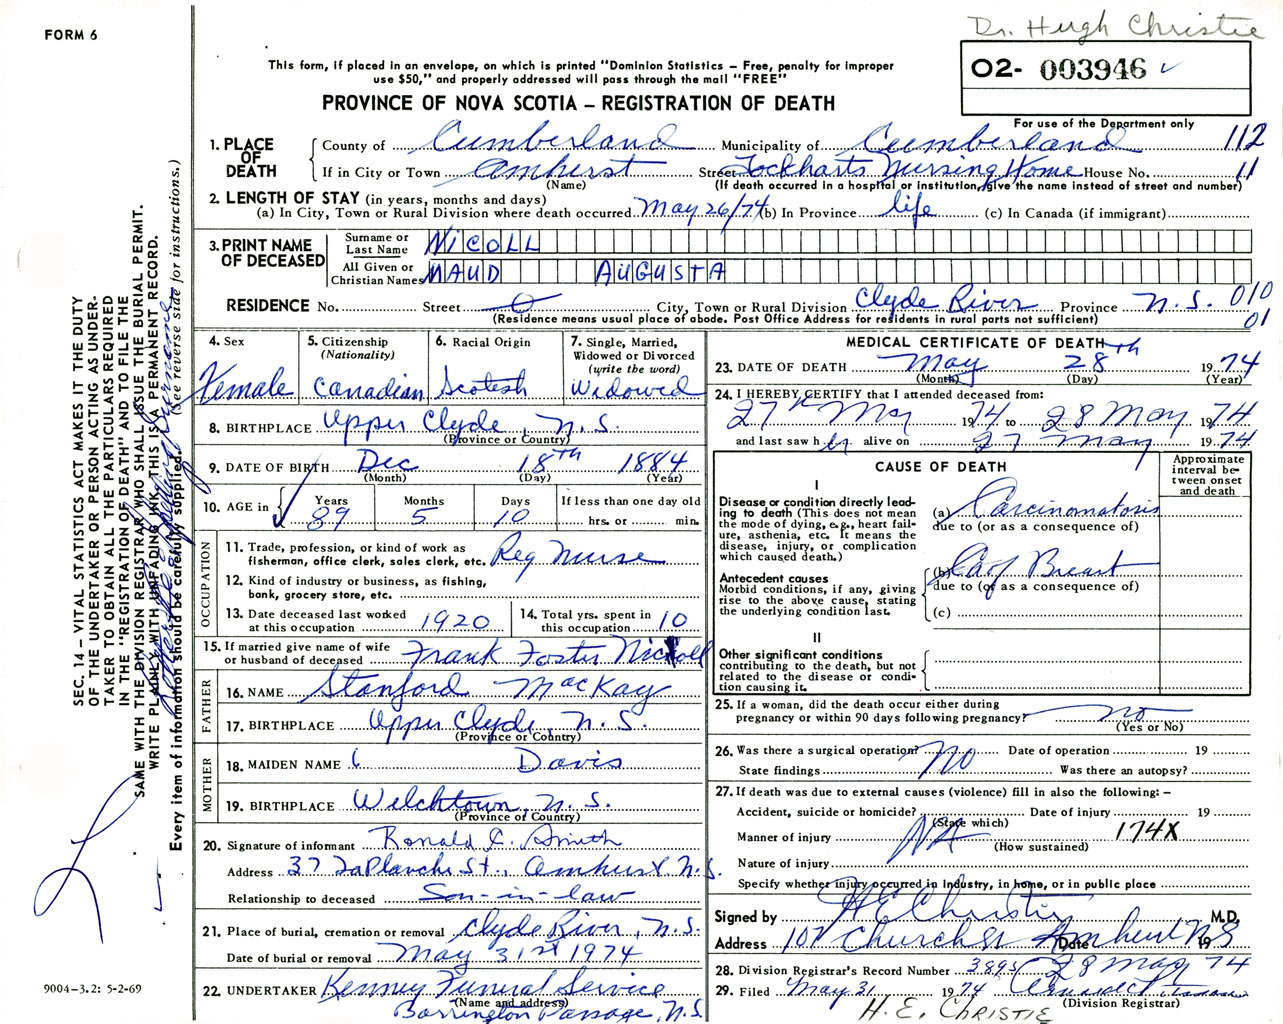 Dr. Hugh Christie
FORM 6
This form, if placed in an envelope, on which is printed "Dominion Statistics – Free, penalty for improper
use $50," and properly addressed will pass through the mail "FREE"
O2- 003946
PROVINCE OF NOVA SCOTIA – REGISTRATION OF DEATH
For use of the Department only
1. PLACE OF DEATH County of Cumberland Municipality of Cumberland 112
If in City or Town Amherst Street Lockharts Nursing Home House No. 11
(Name) (If death occurred in a hospital or institution, give the name instead of street and number)
2. LENGTH OF STAY (in years, months and days)
(a) In City, Town or Rural Division where death occurred May 26/74 (b) In Province life (c) In Canada (if immigrant)
3. PRINT NAME OF DECEASED Surname or Last Name NICOLL
All Given or Christian Names MAUD AUGUSTA
RESIDENCE No. Street O City, Town or Rural Division Clyde River Province N.S. 010
(Residence means usual place of abode. Post Office Address for residents in rural parts not sufficient) 01
4. Sex Female
5. Citizenship (Nationality) Canadian
6. Racial Origin Scotesh
7. Single, Married, Widowed or Divorced (write the word) Widowed
8. BIRTHPLACE Upper Clyde, N.S.
(Province or Country)
9. DATE OF BIRTH Dec 18th 1884
(Month) (Day) (Year)
10. AGE in Years 89 Months 5 Days 10 If less than one day old hrs. or min.
OCCUPATION
11. Trade, profession, or kind of work as
fisherman, office clerk, sales clerk, etc. Reg Nurse
12. Kind of industry or business, as fishing,
bank, grocery store, etc.
13. Date deceased last worked at this occupation 1920
14. Total yrs. spent in this occupation 10
15. If married give name of wife
or husband of deceased Frank Foster Nicoll
FATHER
16. NAME Stanford MacKay
17. BIRTHPLACE Upper Clyde, N.S.
(Province or Country)
MOTHER
18. MAIDEN NAME Davis
19. BIRTHPLACE Welchtown, N.S.
(Province or Country)
20. Signature of informant Ronald C. Smith
Address 37 LaPlanche St., Amherst N.S.
Relationship to deceased Son-in-law
21. Place of burial, cremation or removal Clyde River, N.S.
Date of burial or removal May 31st 1974
22. UNDERTAKER Kenney Funeral Service
(Name and address)
Barrington Passage, N.S.
MEDICAL CERTIFICATE OF DEATH
23. DATE OF DEATH May 28th 1974
(Month) (Day) (Year)
24. I HEREBY CERTIFY that I attended deceased from:
27th May 1974 to 28 May 1974
and last saw her alive on 27 May 1974
CAUSE OF DEATH
Approximate interval between onset and death
I
Disease or condition directly leading to death (This does not mean the mode of dying, e.g., heart failure, asthenia, etc. It means the disease, injury, or complication which caused death.)
(a) Carcinomatosis
due to (or as a consequence of)
Antecedent causes
Morbid conditions, if any, giving rise to the above cause, stating the underlying condition last.
(b) Ca of Breast
due to (or as a consequence of)
(c)
II
Other significant conditions
contributing to the death, but not related to the disease or condition causing it.
25. If a woman, did the death occur either during
pregnancy or within 90 days following pregnancy? no
(Yes or No)
26. Was there a surgical operation? No Date of operation 19
State findings Was there an autopsy?
27. If death was due to external causes (violence) fill in also the following: –
Accident, suicide or homicide? Date of injury 19
(State which)
Manner of injury NA 174X
(How sustained)
Nature of injury
Specify whether injury occurred in Industry, in home, or in public place
Signed by H E Christie M.D.
Address 107 Church St Amherst NS Date 19
28 May 74
28. Division Registrar's Record Number 3895
29. Filed May 31 1974
(Division Registrar)
H. E. CHRISTIE
SEC. 14 – VITAL STATISTICS ACT MAKES IT THE DUTY
OF THE UNDERTAKER OR PERSON ACTING AS UNDER-
TAKER TO OBTAIN ALL THE PARTICULARS REQUIRED
IN THE "REGISTRATION OF DEATH" AND TO FILE THE
SAME WITH THE DIVISION REGISTRAR WHO SHALL ISSUE THE BURIAL PERMIT.
WRITE PLAINLY WITH UNFADING INK. THIS IS A PERMANENT RECORD.
Every item of information should be carefully supplied. (See reverse side for instructions.)
9004-3.2: 5-2-69